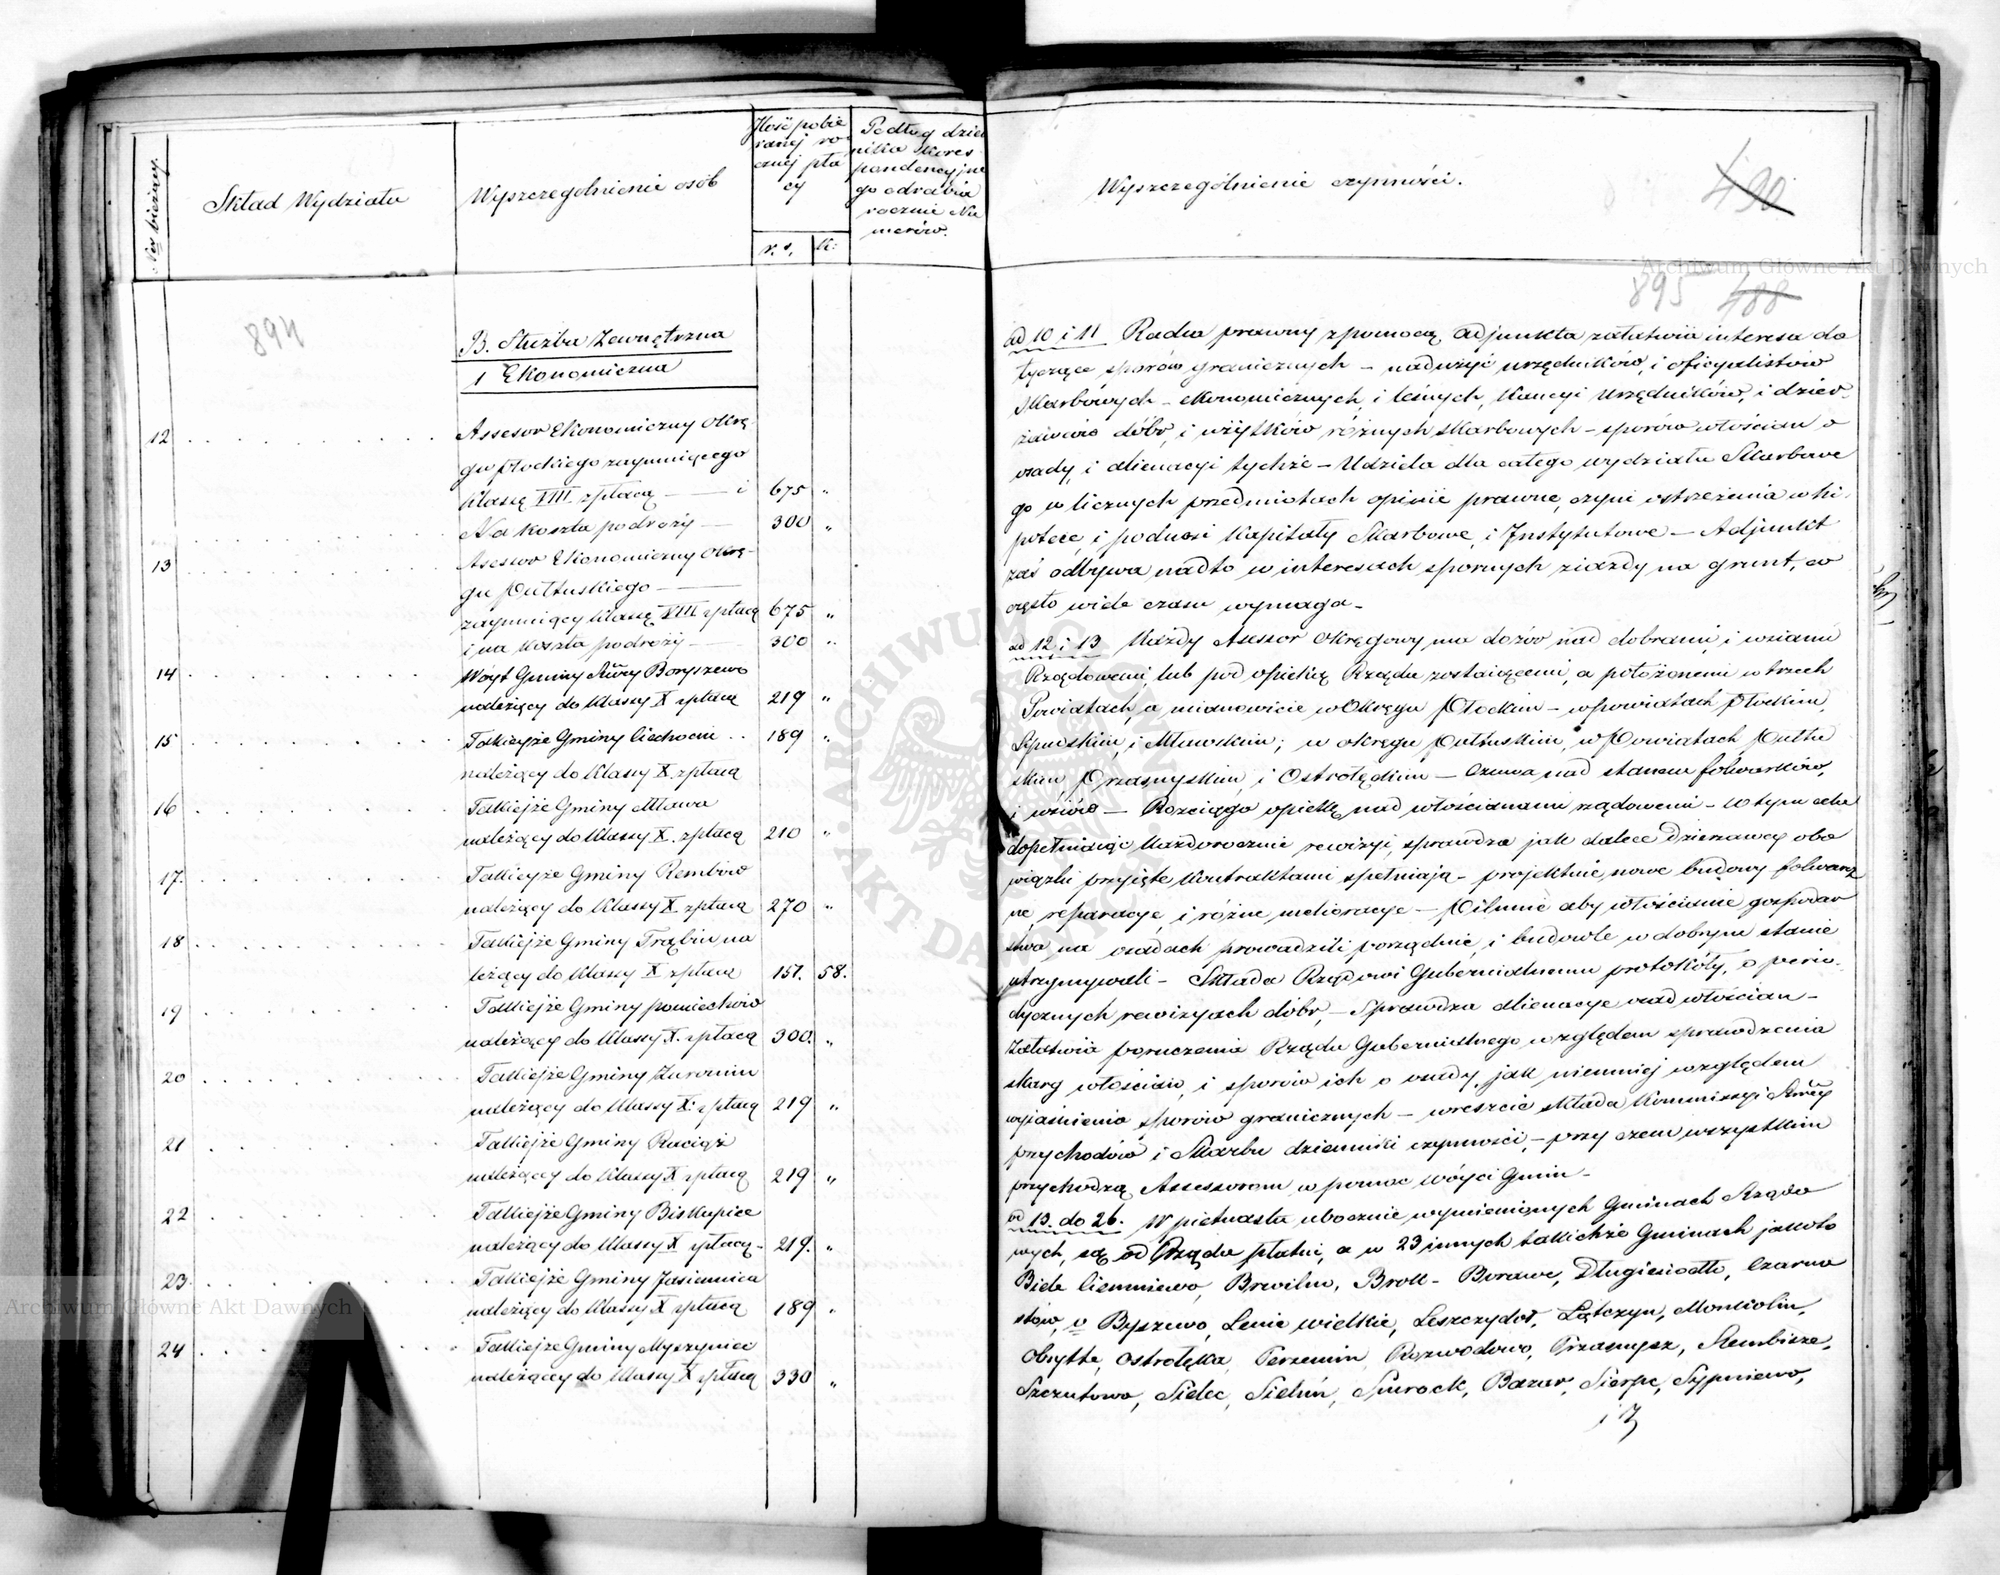 Ner bieżący.
Skład Wydziału
Wyszczególnienie osób
Ilość pobie
ranej ro
cznej pła
cy
r. s.
k:
Podług dzien
nika kores
pondencyjne
go odrabia
rocznie Nu
merów.
894
B. Służba Zewnętrzna
1 Ekonomiczna
12 Assesor Ekonomiczny Okrę
gu Płockiego zaymującego
klassę VIII z płacą — i 675 "
Na koszta podróży — 300 "
13 Asesor Ekonomiczny Okrę-
gu Pułtuskiego —
zaymujący klassę VIII z płacą 675 "
i na koszta podroży — 300 "
14 Wójt Gminy Boryszewo
należący do klassy X z płacą 219 "
15 Takiejże Gminy Ciechocin .. 189 "
należący do klassy X. z płacą
16 Takiejże Gminy Mława
należący do klassy X. z płacą 210 "
17. Takiejże Gminy Rembowo
należący do klassy X z płacą 270 "
18 Takiejże Gminy Trąbin na
leżący do klassy X z płacą 157. 58.
19 Takiejże Gminy Pomiechowo
należący do klassy X. z płacą 300. "
20 Takiejże Gminy Żuromin
należący do klassy X: z płacą 219 "
21 Takiejże Gminy Raciąż
należący do klassy X z płacą 219 "
22 Takiejże Gminy Biskupice
należący do klassy X z płacą - 219. "
23 Takiejże Gminy Jasienica
należący do klassy X z płacą 189 "
24 Takiejże Gminy Myszyniec
należący do klassy X z płacą 330 "
Wyszczególnienie czynności.
490
895 488
ad 10 i 11 Radca prawny z pomocą Adjunkta załatwia interesa do
tyczące sporów granicznych — nadużyć urzędników, i oficyalistów
skarbowych — ekonomicznych, i leśnych, kaucyi urzędników, i dzier-
żawców dóbr, i użytków różnych skarbowych — sporów włościan o
osady, i alienacyi tychże — Udziela dla całego wydziału Skarbowe
go w licznych przedmiotach opinie prawne, czyni ostrzeżenia w hi-
potece, i podnosi kapitały Skarbowe, i Instytutowe — Adjunkt
zaś odbywa nadto w interesach spornych zjazdy na grunt, co
często wiele czasu wymaga —
ad 12 i 13 Każdy Asessor Okręgowy ma dozór nad dobrami, i wsiami
Rządowemi, lub pod opieką Rządu zostającemi, a położonemi w trzech
Powiatach, a mianowicie w Okręgu Płockim — w powiatach Płockim,
Lipnoskim, i Mławskim; w okręgu Pułtuskim, w Powiatach Pułtu
skim, Przasnyskim, i Ostrołęckim — Czuwa nad stanem folwarków,
i wsiów — Rozciąga opiekę nad włościanami rządowemi — w tym celu
dopełniając każdorocznie rewizyi, sprawdza jak dalece Dzierżawcy obo
wiązki przyjęte kontraktami spełniają — projektuje nowe budowy folwarcz
ne, reparacye, i różne melioracye — Pilnuje aby włościanie gospodar
stwa na osadach prowadzili porządnie, i budowle w dobrym stanie
utrzymywali — Składa Rządowi Gubernialnemu protokóły, o perio-
dycznych rewizyach dóbr, — Sprawdza alienacye osad włościan —
Załatwia poruczenia Rządu Gubernialnego względem sprawdzenia
skarg włościan, i sporów ich o osady, jak niemniej względem
wyjaśnienia sporów granicznych — wreszcie składa Kommissyi
przychodów i Skarbu dzienniki czynności, — przy czem wszystkim
przychodzą Assessorom w pomoc Wójci Gmin —
do 26. W piętnastu ubocznie wymienionych Gminach Rządo
wych, są od Rządu płatni, a w 23 innych takichże Gminach jakoto
Biele Ciemniewo, Brwilno, Brok — Borawe, Długiesiodło, Czarno
stów, Byszewo, Lenie wielkie, Leszczydół, Łątczyn, Monkolin,
Obrytte, Ostrołęka, Rozwodowo, Przasnysz,
Szczutowo, Sielec, Sieluń, Serock, Bazar, Sierpc, Sypniewo,
i Z